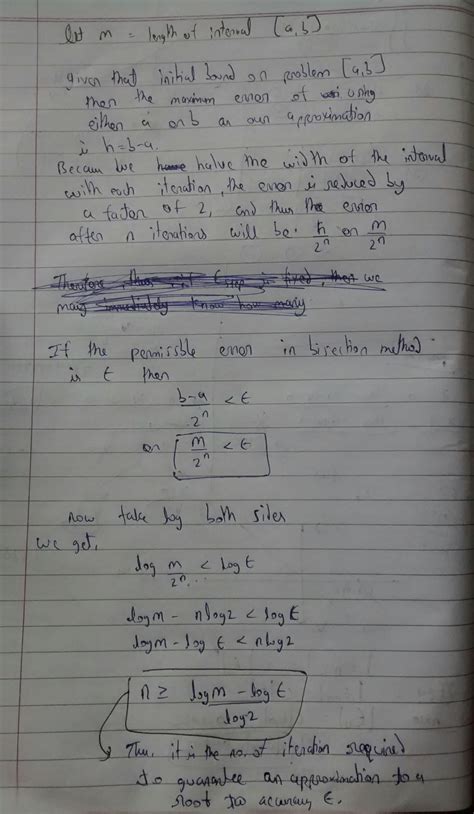 let m = length of interval [a,b]
given that initial bound on problem [a,b]
then the maximum error of using
either a or b as our approximation
is h=b-a.
Because we halve the width of the interval
with each iteration, the error is reduced by
a factor of 2, and thus the error
after n iterations will be. h/2^n or m/2^n
Therefore, thus, if ε step is fixed, then we
may immediately know how many
If the permissble error in bisection method
is ϵ then
b-a/2^n < ϵ
or m/2^n < ϵ
Now take log both sides
we get,
log m/2^n < log ϵ
log m - n log 2 < log ϵ
log m - log ϵ < n log 2
n ≥ log m - log ϵ / log 2
Thus, it is the no. of iteration required
to guarantee an approximation to a
root to accuracy ϵ.